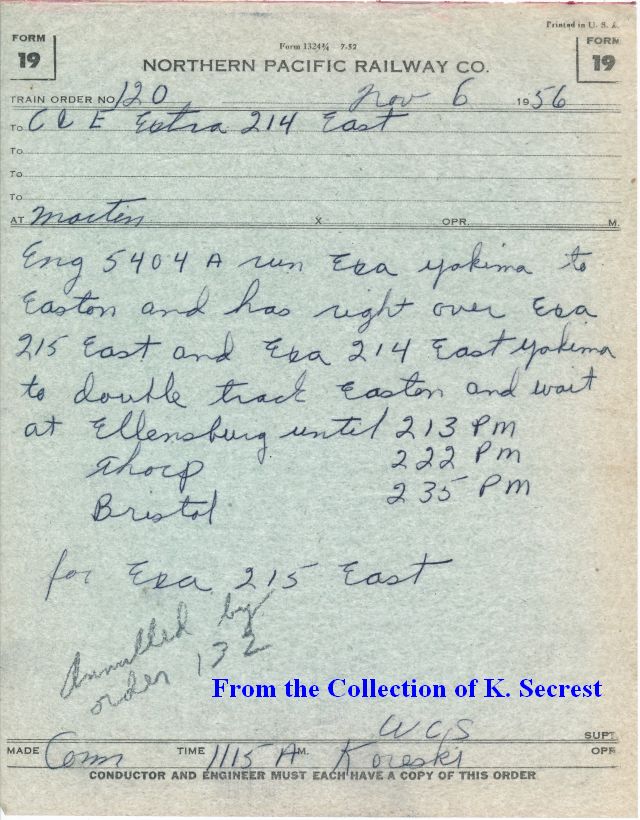 Printed in U. S. A.
FORM 19
Form 1324¾ 7-52
FORM 19
NORTHERN PACIFIC RAILWAY CO.
TRAIN ORDER NO. 120 Nov 6 1956
To C & E Extra 214 East
To
To
To
AT Martin X OPR. M.
Eng 5404 A run Exa Yakima to
Easton and has right over Exa
215 East and Exa 214 East Yakima
to double track Easton and wait
at Ellensburg until 213 PM
Thorp 222 PM
Bristol 235 PM
for Exa 215 East
Annulled by
order 132
From the Collection of K. Secrest
WCS SUPT.
MADE Com TIME 1115 A M. Koreski OPR
CONDUCTOR AND ENGINEER MUST EACH HAVE A COPY OF THIS ORDER